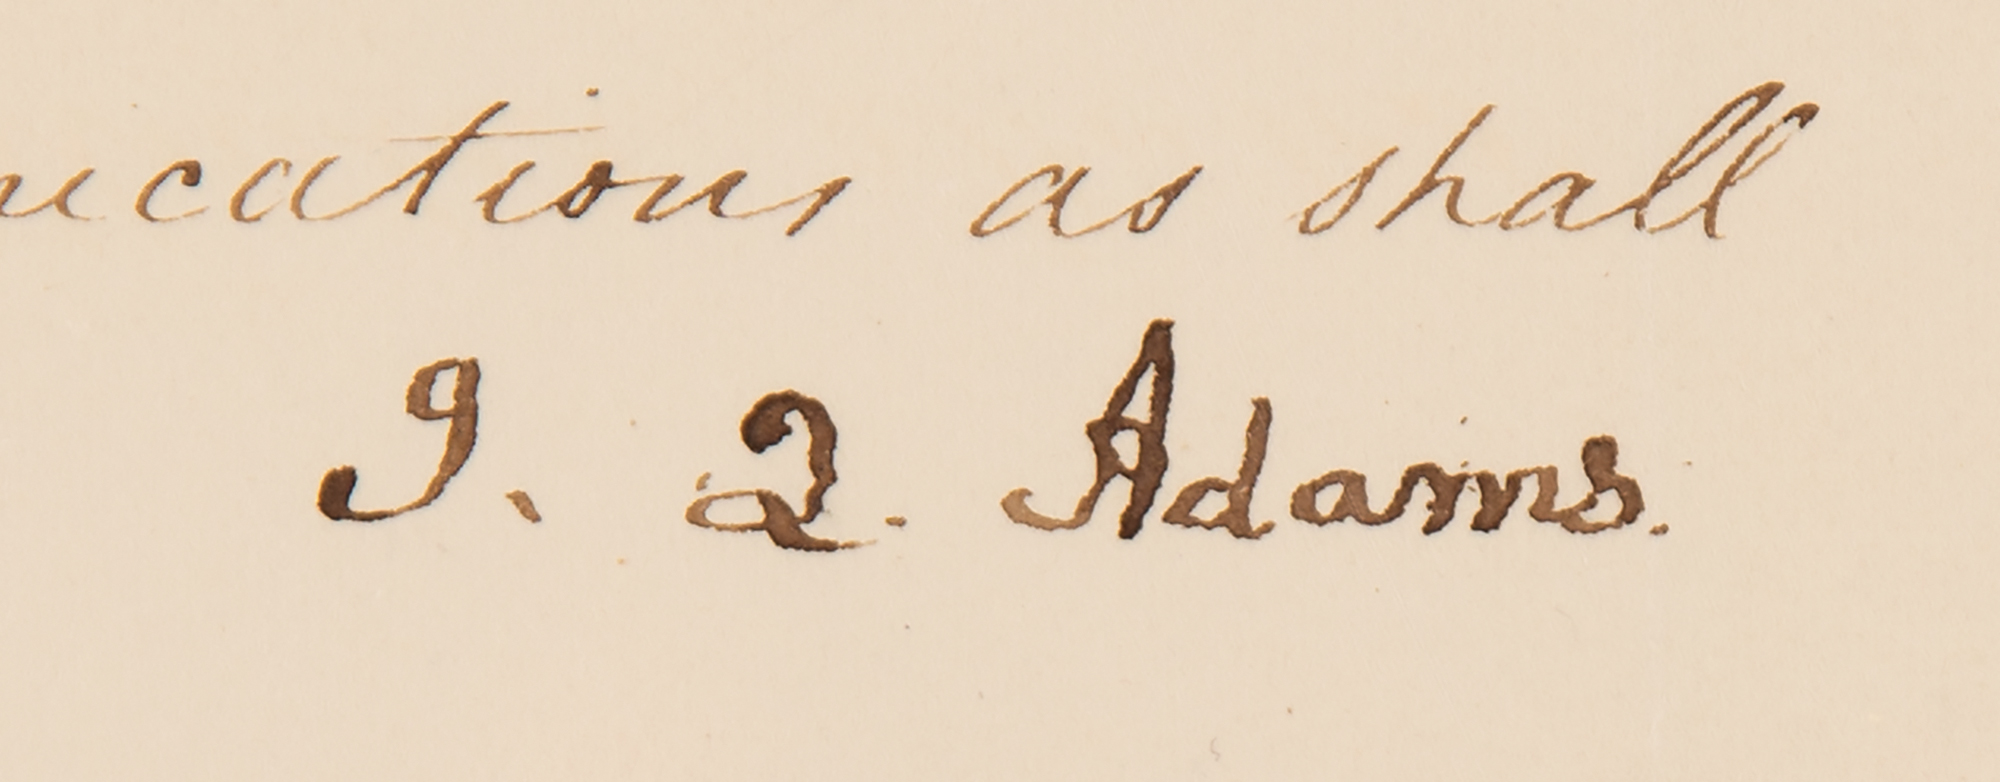 ucations as shall
J. Q. Adams.